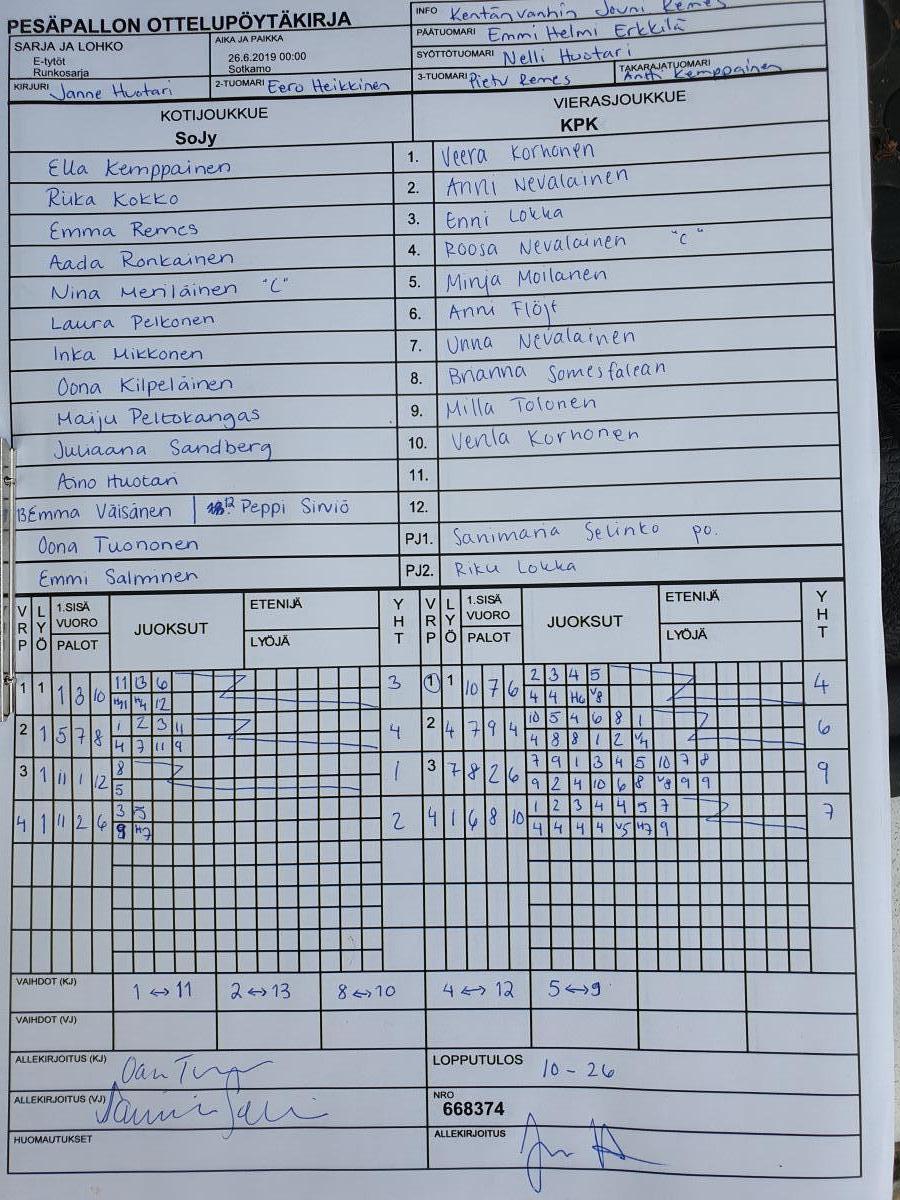 PESÄPALLON OTTELUPÖYTÄKIRJA
INFO Kentän vanhin Jouni Remes
SARJA JA LOHKO E-tytöt Runkosarja
AIKA JA PAIKKA 26.6.2019 00:00 Sotkamo
PÄÄTUOMARI Emmi Helmi Erkkilä
SYÖTTÖTUOMARI Nelli Huotari
KIRJURI Janne Huotari 2-TUOMARI Eero Heikkinen 3-TUOMARI Pietu Remes TAKARAJATUOMARI Antti Kemppainen
KOTIJOUKKUE VIERASJOUKKUE
SoJy KPK
Ella Kemppainen 1. Veera Korhonen
Riika Kokko 2. Anni Nevalainen
Emma Remes 3. Enni Lokka
Aada Ronkainen 4. Roosa Nevalainen "C"
Nina Meriläinen "C" 5. Minja Moilanen
Laura Pelkonen 6. Anni Flöjt
Inka Mikkonen 7. Unna Nevalainen
Oona Kilpeläinen 8. Brianna Somesfalean
Maiju Peltokangas 9. Milla Tolonen
Juliaana Sandberg 10. Venla Korhonen
Aino Huotari 11.
13 Emma Väisänen 12 Peppi Sirviö 12.
Oona Tuononen PJ1. Sanimaria Selinko po.
Emmi Salminen PJ2. Riku Lokka
VRP LYÖ 1.SISÄ VUORO PALOT JUOKSUT ETENIJÄ LYÖJÄ YHT VRP LYÖ 1.SISÄ VUORO PALOT JUOKSUT ETENIJÄ LYÖJÄ YHT
11 13 6 2 3 4 5
1 1 1 3 10 3 1 1 10 7 6 4
H11 H4 12 4 4 H6 V8
1 2 3 11 10 5 4 6 8 1
2 1 5 7 8 4 2 4 7 9 4 6
4 7 11 9 4 8 8 1 2 V4
8 7 9 1 3 4 5 10 7 8
3 1 11 1 12 1 3 7 8 2 6 9
5 9 2 4 10 6 8 V8 9 9
3 5 1 2 3 4 4 5 7
4 1 11 2 6 2 4 1 6 8 10 7
9 H7 4 4 4 4 V5 H7 9
VAIHDOT (KJ) 1 ↔ 11 2 ↔ 13 8 ↔ 10 4 ↔ 12 5 ↔ 9
VAIHDOT (VJ)
ALLEKIRJOITUS (KJ) LOPPUTULOS 10 - 26
ALLEKIRJOITUS (VJ) NRO 668374
HUOMAUTUKSET ALLEKIRJOITUS